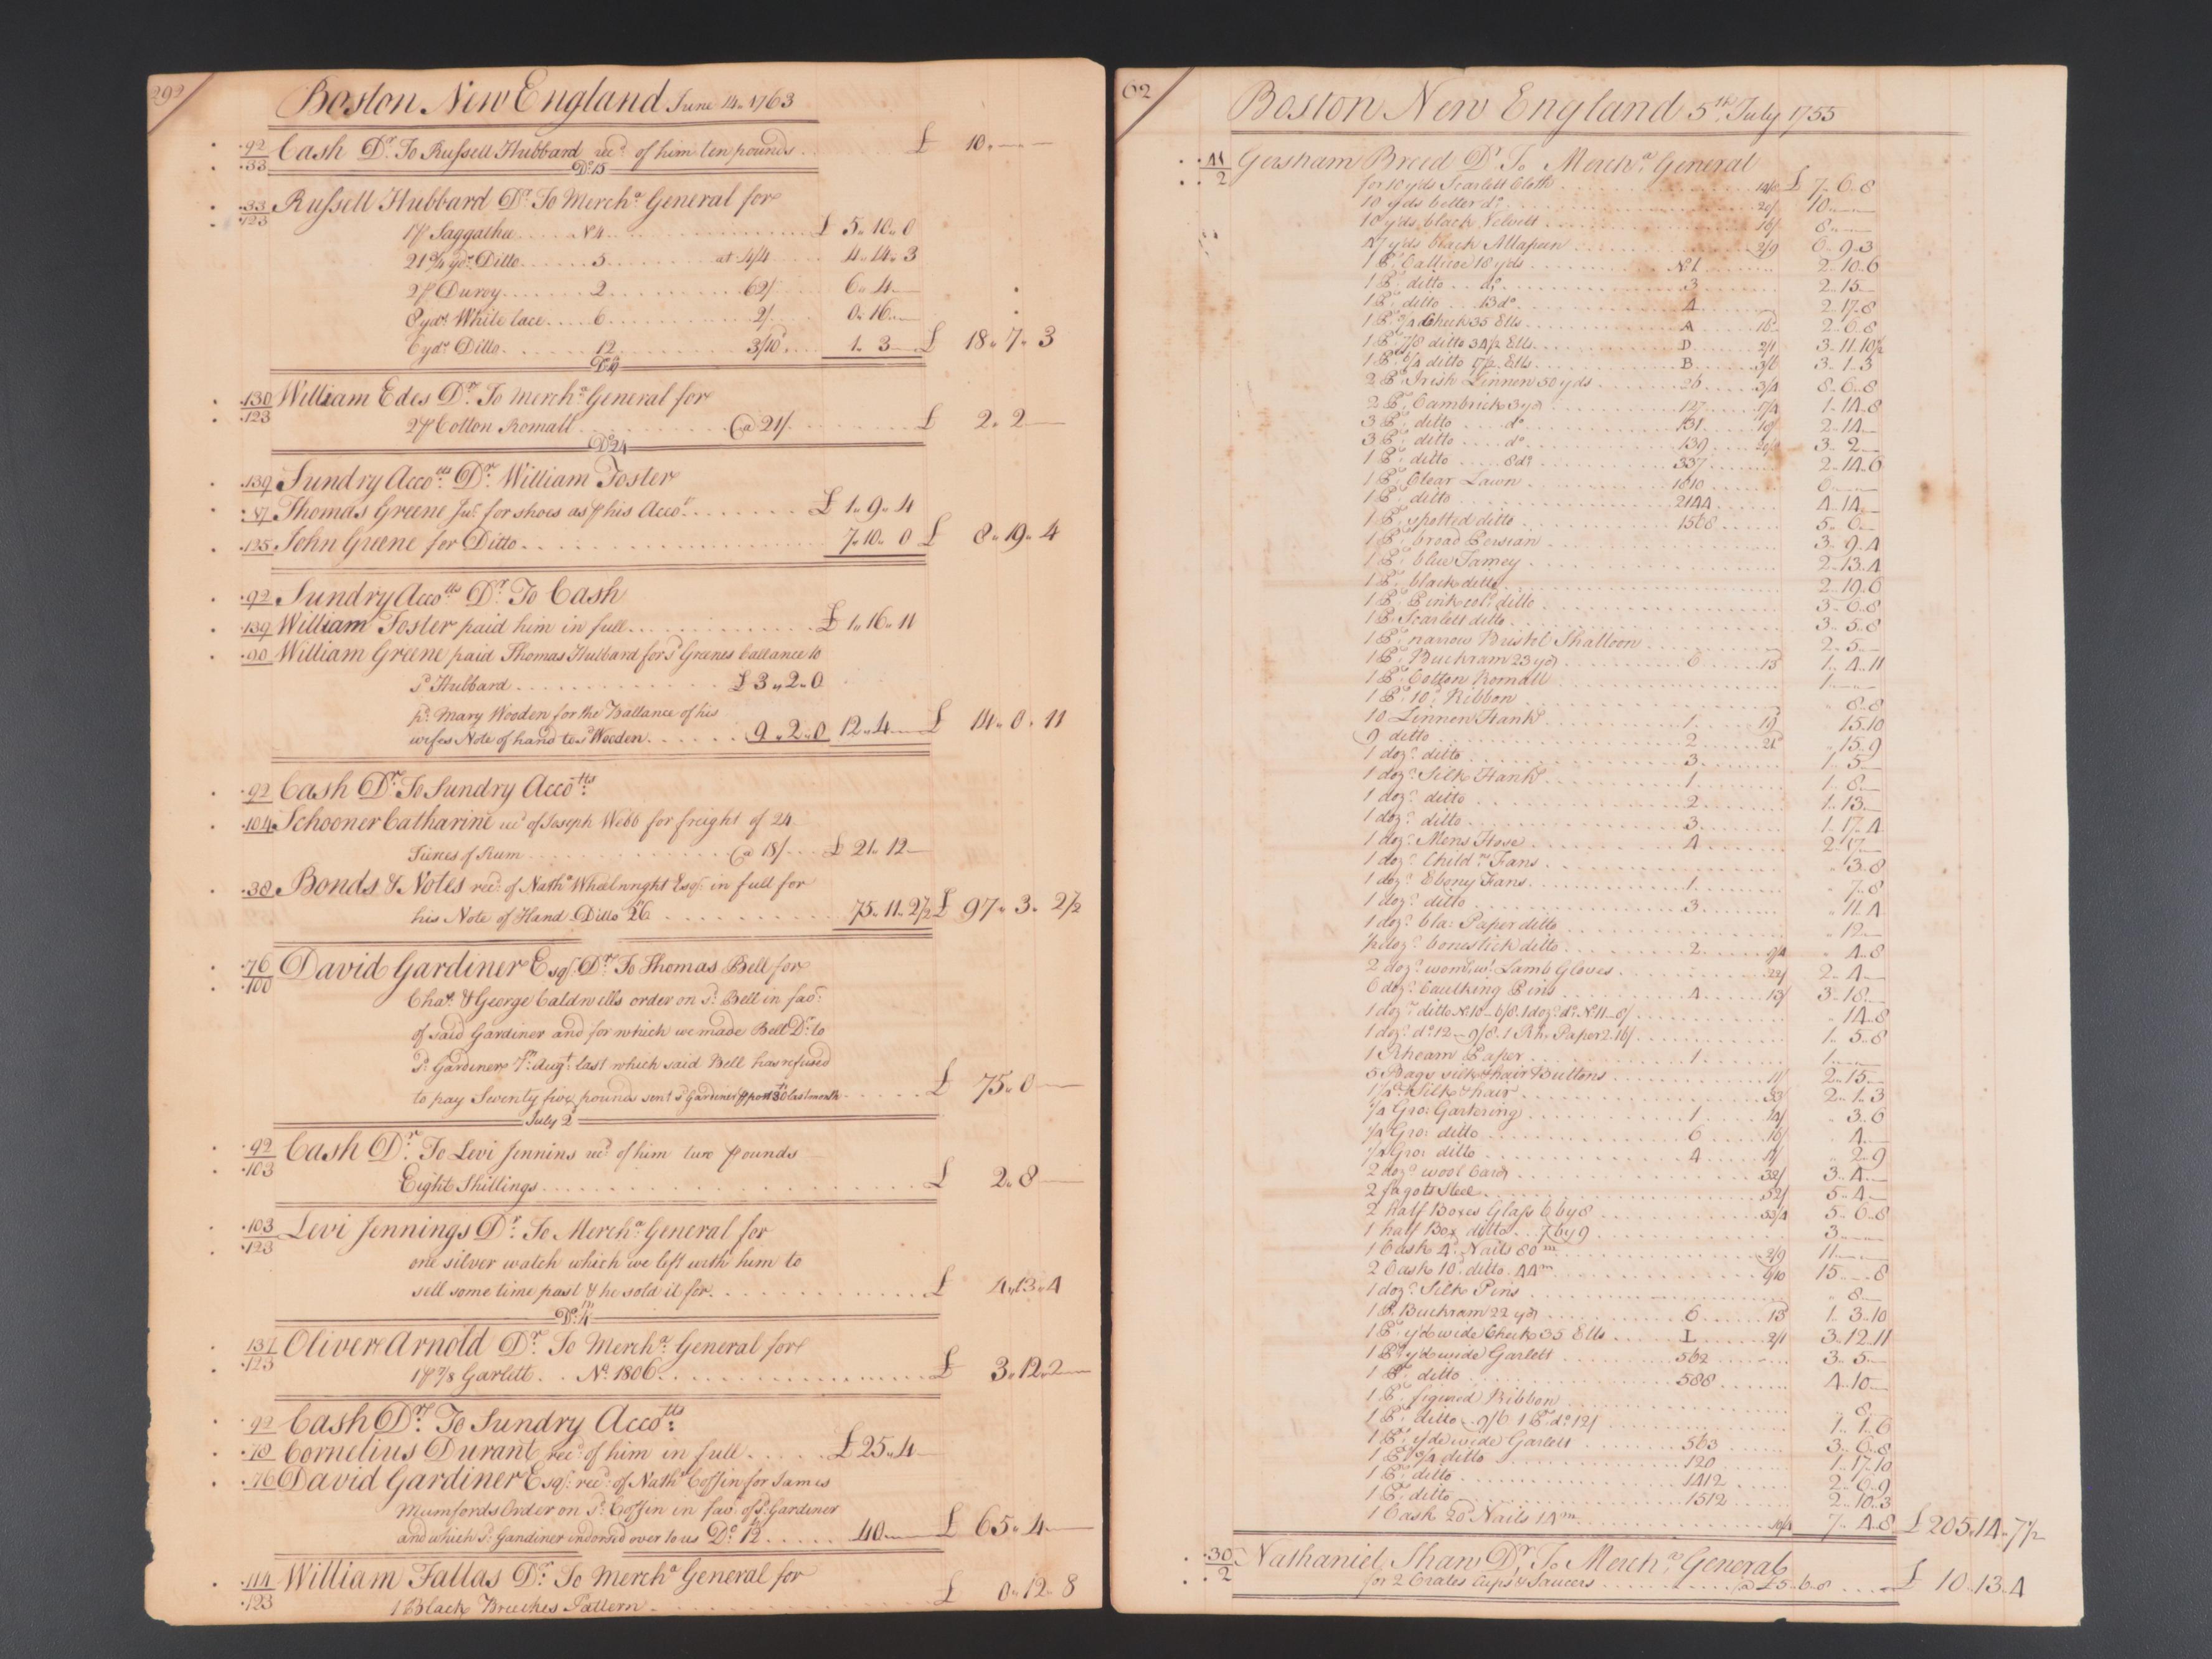 292
Boston New England June 14. 1763
92 Cash Dr. To Russell Hubbard recd. of him ten pounds . . £ 10.. — —
33
Do. 15
33 Russell Hubbard Dr. To Mercha. General for
123
1 p Saggathee . . . . No 4 . . . . £ 5.. 10.. 0
21 3/4 yds. Ditto . . . . 5 . . . . at 4/4 . . . . 4.. 14.. 3
2 p Duroy . . . . 2 . . . . 62/ . . . . 6.. 4 —
8 yds. White lace . . . . 6 . . . . 2/ . . . . 0.. 16 —
6 yds. Ditto . . . . 12 . . . . 3/10 . . . . 1.. 3 — £ 18.. 7.. 3
130 William Edes Dr. To Mercha. General for
123
2 p Cotton Romall . . . . @ 21/ . . . . £ 2.. 2 —
Do. 24
139 Sundry Accotts. Dr. William Foster
87 Thomas Greene Jur. for shoes as p his Accot. . . . . £ 1.. 9.. 4
125 John Greene for Ditto . . . . 7.. 10.. 0 £ 8.. 19.. 4
92 Sundry Accotts Dr. To Cash
139 William Foster paid him in full . . . . £ 1.. 16.. 11
90 William Greene paid Thomas Hubbard for sd Greenes ballance to
sd. Hubbard . . . . £ 3.. 2.. 0
pd. Mary Wooden for the Ballance of his
wifes Note of hand to sd Wooden . . . . 9.. 2.. 0 12.. 4 — £ 14.. 0.. 11
92 Cash Dr. To Sundry Accotts.
104 Schooner Catharine recd of Joseph Webb for freight of 24
Tierces of Rum . . . . @ 18/ . . . . £ 21.. 12 —
38 Bonds & Notes recd. of Natha. Wheelwright Esqr. in full for
his Note of Hand Ditto 26 . . . . 75.. 11.. 2 1/2 £ 97.. 3.. 2 1/2
76 David Gardiner Esqr. Dr. To Thomas Bell for
100
Chas. & George Caldwells order on sd. Bell in favr.
of said Gardiner and for which we made Bell Dr. to
sd. Gardiner 7th. Augt. last which said Bell has refused
to pay Seventy five pounds sent sd Gardiner p post 30 last month . . . . £ 75.. 0 —
July 2
92 Cash Dr. To Levi Jennins recd. of him two pounds
103
Eight Shillings . . . . £ 2.. 8 —
103 Levi Jennings Dr. To Mercha. General for
123
one silver watch which we left with him to
sell some time past & he sold it for . . . . £ 4.. 13.. 4
Do. 4th
137 Oliver Arnold Dr. To Mercha. General for
123
1 p 7/8 Garlett . . No. 1806 . . . . £ 3.. 12.. 2 —
92 Cash Dr. To Sundry Accotts.
78 Cornelius Durant recd. of him in full . . . . £ 25.. 4 —
76 David Gardiner Esqr. recd. of Natha. Coffin for James
Mumfords Order on sd. Coffin in favr. of sd. Gardiner
and which sd. Gardiner indorsed over to us Do. 12 . . . . 40 — £ 65.. 4 —
114 William Fallas Dr. To Mercha. General for
123
1 Black Breeches Pattern . . . . £ 0.. 12.. 8
62
Boston New England 5th. July 1755
41 Gersham Breed Dr. To Mercha. General
2
for 10 yds Scarlett Cloth . . . . £ 7.. 6.. 8
10 yds better do. . . . . 20/ 10 —
10 yds black Velvett . . . . 16/ 8 —
47 yds black Allapeen . . . . 2/9 6.. 9.. 3
1 Ps. Callicoe 18 yds . . . . No 1 . . . . 2.. 10.. 6
1 Ps. ditto . . do. . . . . 3 . . . . 2.. 15 —
1 Ps. ditto . . . 13 do. . . . . 4 . . . . 2.. 17.. 8
1 Ps. 3/4 Check 35 Ells . . . . A . . . . 16 2.. 6.. 8
1 Ps. 7/8 ditto 34 1/2 Ells . . . . D . . . . 2/1 3.. 11.. 10 1/2
1 Ps. 6/4 ditto 17 1/2 Ells . . . . B . . . . 3/6 3.. 1.. 3
2 Ps. Irish Linnen 50 yds . . . . 26 . . . . 3/4 8.. 6.. 8
2 Ps. Cambrick 3 yd . . . . 127 . . . . 17/4 1.. 14.. 8
3 Ps. ditto . . . do. . . . . 131 . . . . 18/ 2.. 14 —
3 Ps. ditto . . . do. . . . . 139 . . . . 3.. 2 —
1 Ps. ditto . . . 8 do. . . . . 337 . . . . 2.. 14.. 6
1 Ps. Clear Lawn . . . . 1810 . . . . 6 —
1 Ps. ditto . . . . 2144 . . . . 4.. 14 —
1 Ps. spotted ditto . . . . 1568 . . . . 5.. 6 —
1 Ps. broad Persian . . . . 3.. 9.. 4
1 Ps. blue Tamey . . . . 2.. 13.. 4
1 Ps. black ditto . . . . 2.. 19.. 6
1 Ps. Pink cold. ditto . . . . 3.. 6.. 8
1 Ps. Scarlett ditto . . . . 3.. 5.. 8
1 Ps. narrow Bristol Shalloon . . . . 2.. 5 —
1 Ps. Buckram 23 yd . . . . 6 . . . . 13 1.. 4.. 11
1 Ps. Cotton Romall . . . . 1 —
1 Ps. 10d. Ribbon . . . . 8.. 8
10 Linnen Hankf . . . . 1 . . . . 19 15.. 10
9 ditto . . . . 2 . . . . 21 15.. 9
1 dozn. ditto . . . . 3 . . . . 1.. 5 —
1 dozn. Silk Hankf . . . . 1 . . . . 1.. 8 —
1 dozn. ditto . . . . 2 . . . . 1.. 13 —
1 dozn. ditto . . . . 3 . . . . 1.. 17.. 4
1 dozn. Mens Hose . . . . 4 . . . . 2.. 17 —
1 dozn. Childns Fans . . . . 3.. 8
1 dozn. Ebony Fans . . . . 1 . . . . 7.. 8
1 dozn. ditto . . . . 3 . . . . 11.. 4
1 dozn. bla: Paper ditto . . . . 12 —
1/2 dozn. bonestick ditto . . . . 2 . . . . 9/4 4.. 8
2 dozn. womns. wt. Lamb Gloves . . . . 22/ 2.. 4 —
6 dozn. Caulking Pins . . . . 4 . . . . 13/ 3.. 18 —
1 dozn. ditto No. 10 - 6/8. 1 dozn. do. No 11 - 8/ . . . . 14.. 8
1 dozn. do. 12 - 9/8. 1 Rhm Paper 2. 16/ . . . . 1.. 5.. 8
1 Rheam Paper . . . . 1 . . . . 1 —
5 Bags silk & hair Buttons . . . . 11/ 2.. 15 —
Silk & hair . . . . 33/ 2.. 1.. 3
1/4 Gro: Gartering . . . . 1 . . . . 14/ 3.. 6
1/4 Gro: ditto . . . . 6 . . . . 16/ 4 —
1/4 Gro: ditto . . . . 4 . . . . 11/ 2.. 9
2 dozn. wool Cards . . . . 32/ 3.. 4 —
2 fagots Steel . . . . 52/ 5.. 4 —
2 half Boxes Glass 6 by 8 . . . . 53/4 5.. 6.. 8
1 half Box ditto . . 7 by 9 . . . . 3 —
1 Cask 4d. Nails 80m . . . . 2/9 11 —
2 Cask 10d. ditto. 44m . . . . 6/10 15.. — 8
1 dozn. Silk Pins . . . . 8 —
1 Ps. Buckram 22 yd . . . . 6 . . . . 13 1.. 3.. 10
1 Ps. yd wide Check 35 Ells . . . . I . . . . 2/1 3.. 12.. 11
1 Ps. yd wide Garlett . . . . 562 . . . . 3.. 5 —
1 Ps. ditto . . . . 588 . . . . 4.. 10 —
1 Ps. figured Ribbon . . . . 8 —
1 Ps. ditto - 9/6 1 Ps. do. 12/ . . . . 1.. 1.. 6
1 Ps. yd wide Garlett . . . . 563 . . . . 3.. 6.. 8
1 Ps. 3/4 ditto . . . . 120 . . . . 1.. 17.. 10
1 Ps. ditto . . . . 1412 . . . . 2.. 6.. 9
1 Ps. ditto . . . . 1512 . . . . 2.. 10.. 3
1 Cask 20d Nails 14m . . . . 10/4 7.. 4.. 8 £ 205.. 14.. 7 1/2
30 Nathaniel Shaw Dr. To Mercha. General
2
for 2 Crates Cups & Saucers . . . . @ £ 5.. 6.. 8 . . . . £ 10.. 13.. 4